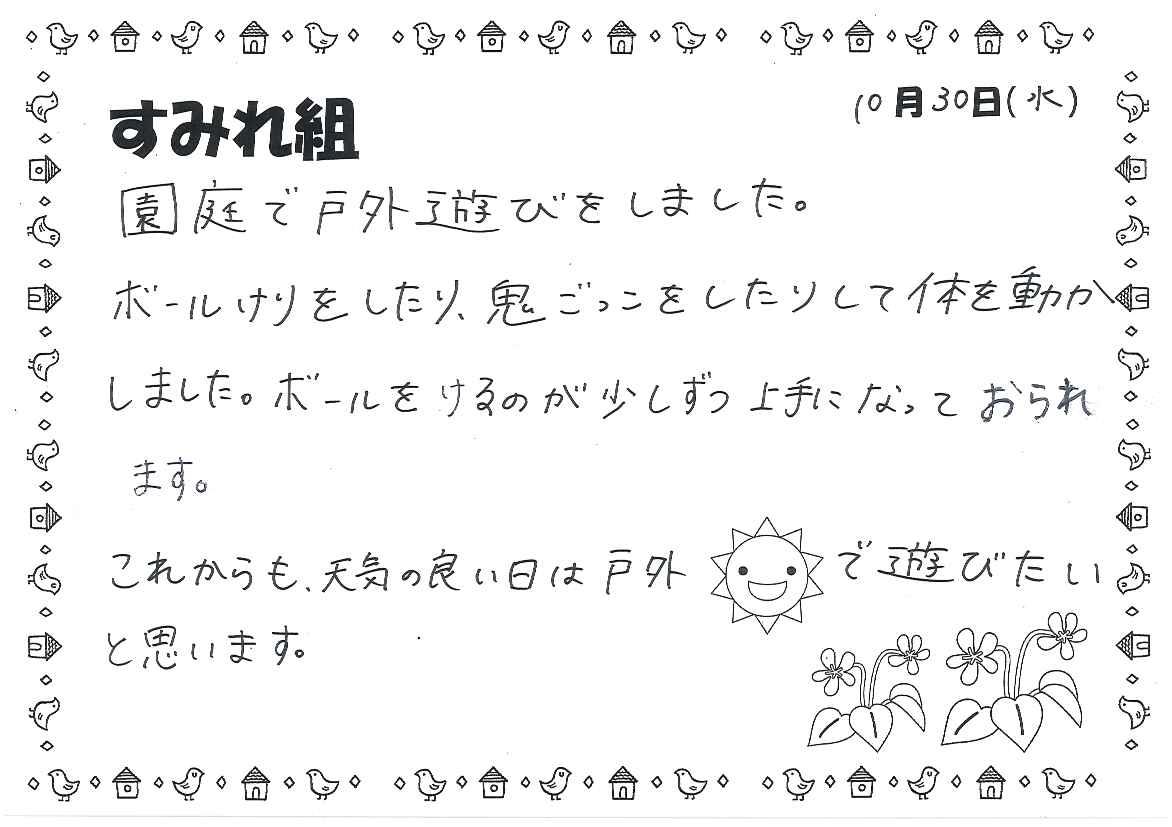 すみれ組
10月30日(水)
園庭で戸外遊びをしました。
ボールけりをしたり、鬼ごっこをしたりして体を動か
しました。ボールをけるのが少しずつ上手になっておられ
ます。
これからも、天気の良い日は戸外で遊びたい
と思います。